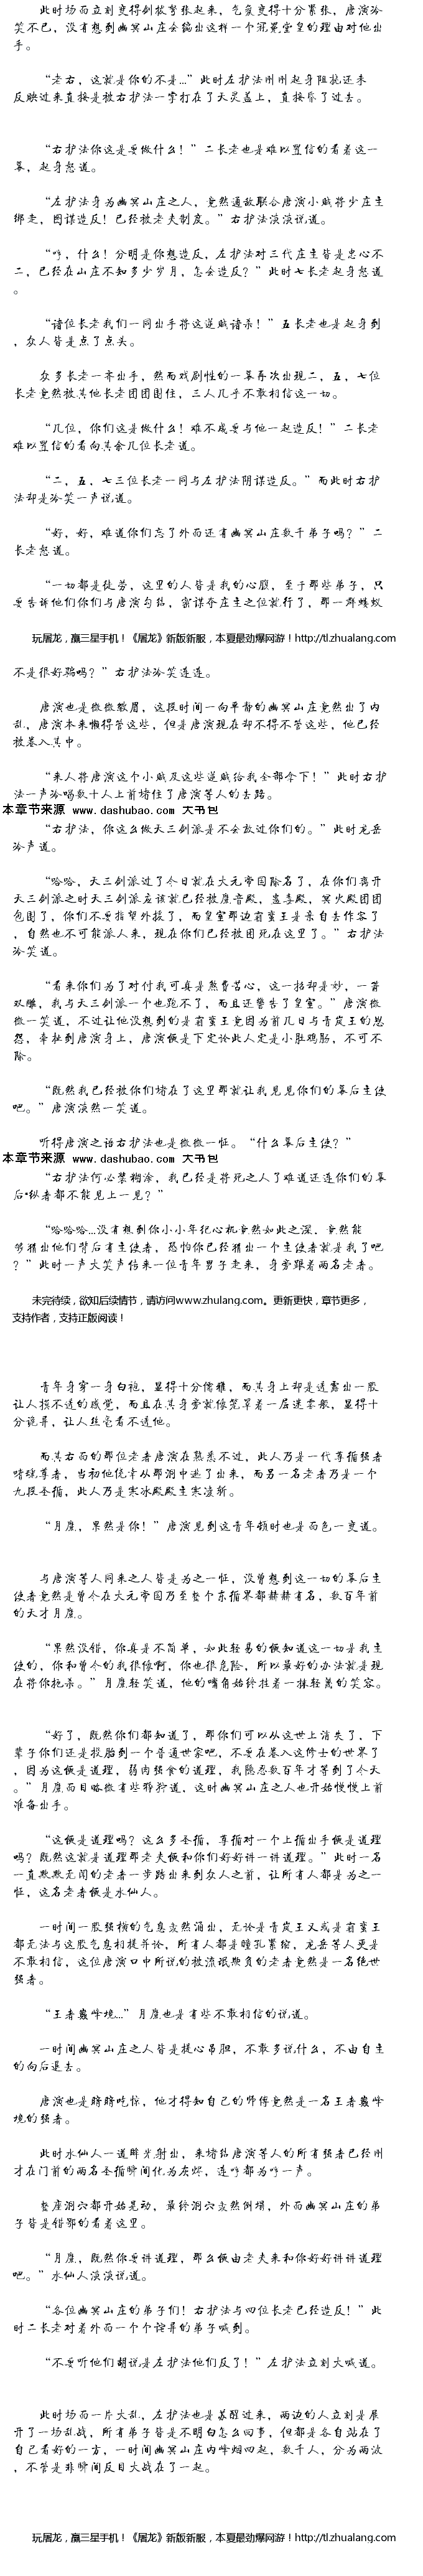 此时场面立刻变得剑拔弩张起来，气氛变得十分紧张，唐演冷
笑不已，没有想到幽冥山庄会编出这样一个冠冕堂皇的理由对他出
手。
“老右，这就是你的不是...”此时左护法刚刚起身阻拢还未
反映过来直接是被右护法一掌打在了天灵盖上，直接昏了过去。
“右护法你这是要做什么！”二长老也是难以置信的看着这一
幕，起身怒道。
“左护法身为幽冥山庄之人，竟然通敌联合唐演小贼将少庄主
绑走，图谋造反！已经被老夫制度。”右护法淡淡说道。
“哼，什么！分明是你想造反，左护法对三代庄主皆是忠心不
二，已经在山庄不知多少岁月，怎会造反？”此时七长老起身怒道
。
“诸位长老我们一同出手将这逆贼诸杀！”五长老也是起身到
，众人皆是点了点头。
众多长老一齐出手，然而戏剧性的一幕再次出现二，五，七位
长老竟然被其他长老团团围住，三人几乎不敢相信这一切。
“几位，你们这是做什么！难不成要与他一起造反！”二长老
难以置信的看向其余几位长老道。
“二，五，七三位长老一同与左护法阴谋造反。”而此时右护
法却是冷笑一声说道。
“好，好，难道你们忘了外面还有幽冥山庄数千弟子吗？”二
长老怒道。
“一切都是徒劳，这里的人皆是我的心腹，至于那些弟子，只
要告诉他们你们与唐演勾结，密谋夺庄主之位就行了，那一群蝼蚁
玩屠龙，赢三星手机！《屠龙》新版新服，本夏最劲爆网游！http://tl.zhualang.com
不是很好骗吗？”右护法冷笑连连。
唐演也是微微皱眉，这段时间一向平静的幽冥山庄竟然出了内
乱，唐演本来懒得管这些，但是唐演现在却不得不管这些，他已经
被卷入其中。
“来人将唐演这个小贼及这些逆贼给我全部拿下！”此时右护
法一声冷喝数十人上前堵住了唐演等人的去路。
本章节来源 www.dashubao.com 大书包
“右护法，你这么做天三剑派是不会放过你们的。”此时龙岳
冷声道。
“哈哈，天三剑派过了今日就在大元帝国除名了，在你们离开
天三剑派之时天三剑派应该就已经被魔音殿，盅毒殿，冥火殿团团
包围了，你们不要指望外援了，而皇室那边有蛮王是亲自去作客了
，自然也不可能派人来，现在你们已经被困死在这里了。”右护法
冷笑道。
“看来你们为了对付我可真是煞费苦心，这一招却是妙，一箭
双雕，我与天三剑派一个也跑不了，而且还警告了皇室。”唐演微
微一笑道，不过让他没想到的是有蛮王竟因为前几日与青岚王的恩
怨，牵扯到唐演身上，唐演便是下定论此人定是小肚鸡肠，不可不
除。
“既然我已经被你们堵在了这里那就让我见见你们的幕后主使
吧。”唐演淡然一笑道。
听得唐演之话右护法也是微微一怔。“什么幕后主使？”
本章节来源 www.dashubao.com 大书包
“右护法何必装糊涂，我已经是将死之人了难道还连你们的幕
后*纵者都不能见上一见？”
“哈哈哈...没有想到你小小年纪心机竟然如此之深，竟然能
够猜出他们背后有主使者，恐怕你已经猜出一个主使者就是我了吧
？”此时一声大笑声传来一位青年男子走来，身旁跟着两名老者。
未完待续，欲知后续情节，请访问www.zhulang.com。更新更快，章节更多，
支持作者，支持正版阅读！
青年身穿一身白袍，显得十分儒雅，而其身上却是透露出一股
让人摸不透的感觉，而且在其身旁就像笼罩着一层迷雾般，显得十
分诡异，让人丝毫看不透他。
而其右面的那位老者唐演在熟悉不过，此人乃是一代尊指强者
嗜魂尊者，当初他侥幸从那洞中逃了出来，而另一名老者乃是一个
九段圣指，此人乃是寒冰殿殿主寒凌斩。
“月魔，果然是你！”唐演见到这青年顿时也是面色一变道。
与唐演等人同来之人皆是为之一怔，没曾想到这一切的幕后主
使者竟然是曾今在大元帝国乃至整个东指界都赫赫有名，数百年前
的天才月魔。
“果然没错，你真是不简单，如此轻易的便知道这一切是我主
使的，你和曾今的我很像啊，你也很危险，所以最好的办法就是现
在将你抱杀。”月魔轻笑道，他的嘴角始终挂着一抹轻蔑的笑容。
“好了，既然你们都知道了，那你们可以从这世上消失了，下
辈子你们还是投胎到一个普通世家吧，不要在卷入这修士的世界了
，因为这便是道理，弱肉强食的道理，我隐忍数百年才等到了今天
。”月魔面目略微有些狰狞道，这时幽冥山庄之人也开始慢慢上前
准备出手。
“这便是道理吗？这么多圣指，尊指对一个上指出手便是道理
吗？既然这就是道理那老夫便和你们好好讲一讲道理。”此时一名
一直默默无闻的老者一步踏出来到众人之前，让所有人都是为之一
怔，这名老者便是水仙人。
一时间一股强横的气息轰然涌出，无论是青岚王又或是有蛮王
都无法与这股气息相提并论，所有人都是瞳孔紧缩，龙岳等人更是
不敢相信，这位唐演口中所说的被流氓欺负的老者竟然是一名绝世
强者。
“王者巅峰境...”月魔也是有些不敢相信的说道。
一时间幽冥山庄之人皆是提心吊胆，不敢多说什么，不由自主
的向后退去。
唐演也是暗暗吃惊，他才得知自己的师傅竟然是一名王者巅峰
境的强者。
此时水仙人一道眸光射出，来堵给唐演等人的所有强者已经刚
才在门前的两名圣指瞬间化为灰烬，连哼都为哼一声。
整座洞穴都开始晃动，最终洞穴轰然倒塌，外面幽冥山庄的弟
子皆是错愕的看着这里。
“月魔，既然你要讲道理，那么便由老夫来和你好好讲讲道理
吧。”水仙人淡淡说道。
“各位幽冥山庄的弟子们！右护法与四位长老已经造反！”此
时二长老对着外面一个个诧异的弟子喊到。
“不要听他们胡说是左护法他们反了！”左护法立刻大喊道。
此时场面一片大乱，左护法也是苏醒过来，两边的人立刻是展
开了一场乱战，所有弟子皆是不明白怎么回事，但都是各自站在了
自己看好的一方，一时间幽冥山庄内烽烟四起，数千人，分为两波
，不管是非瞬间反目大战在了一起。
玩屠龙，赢三星手机！《屠龙》新版新服，本夏最劲爆网游！http://tl.zhualang.com